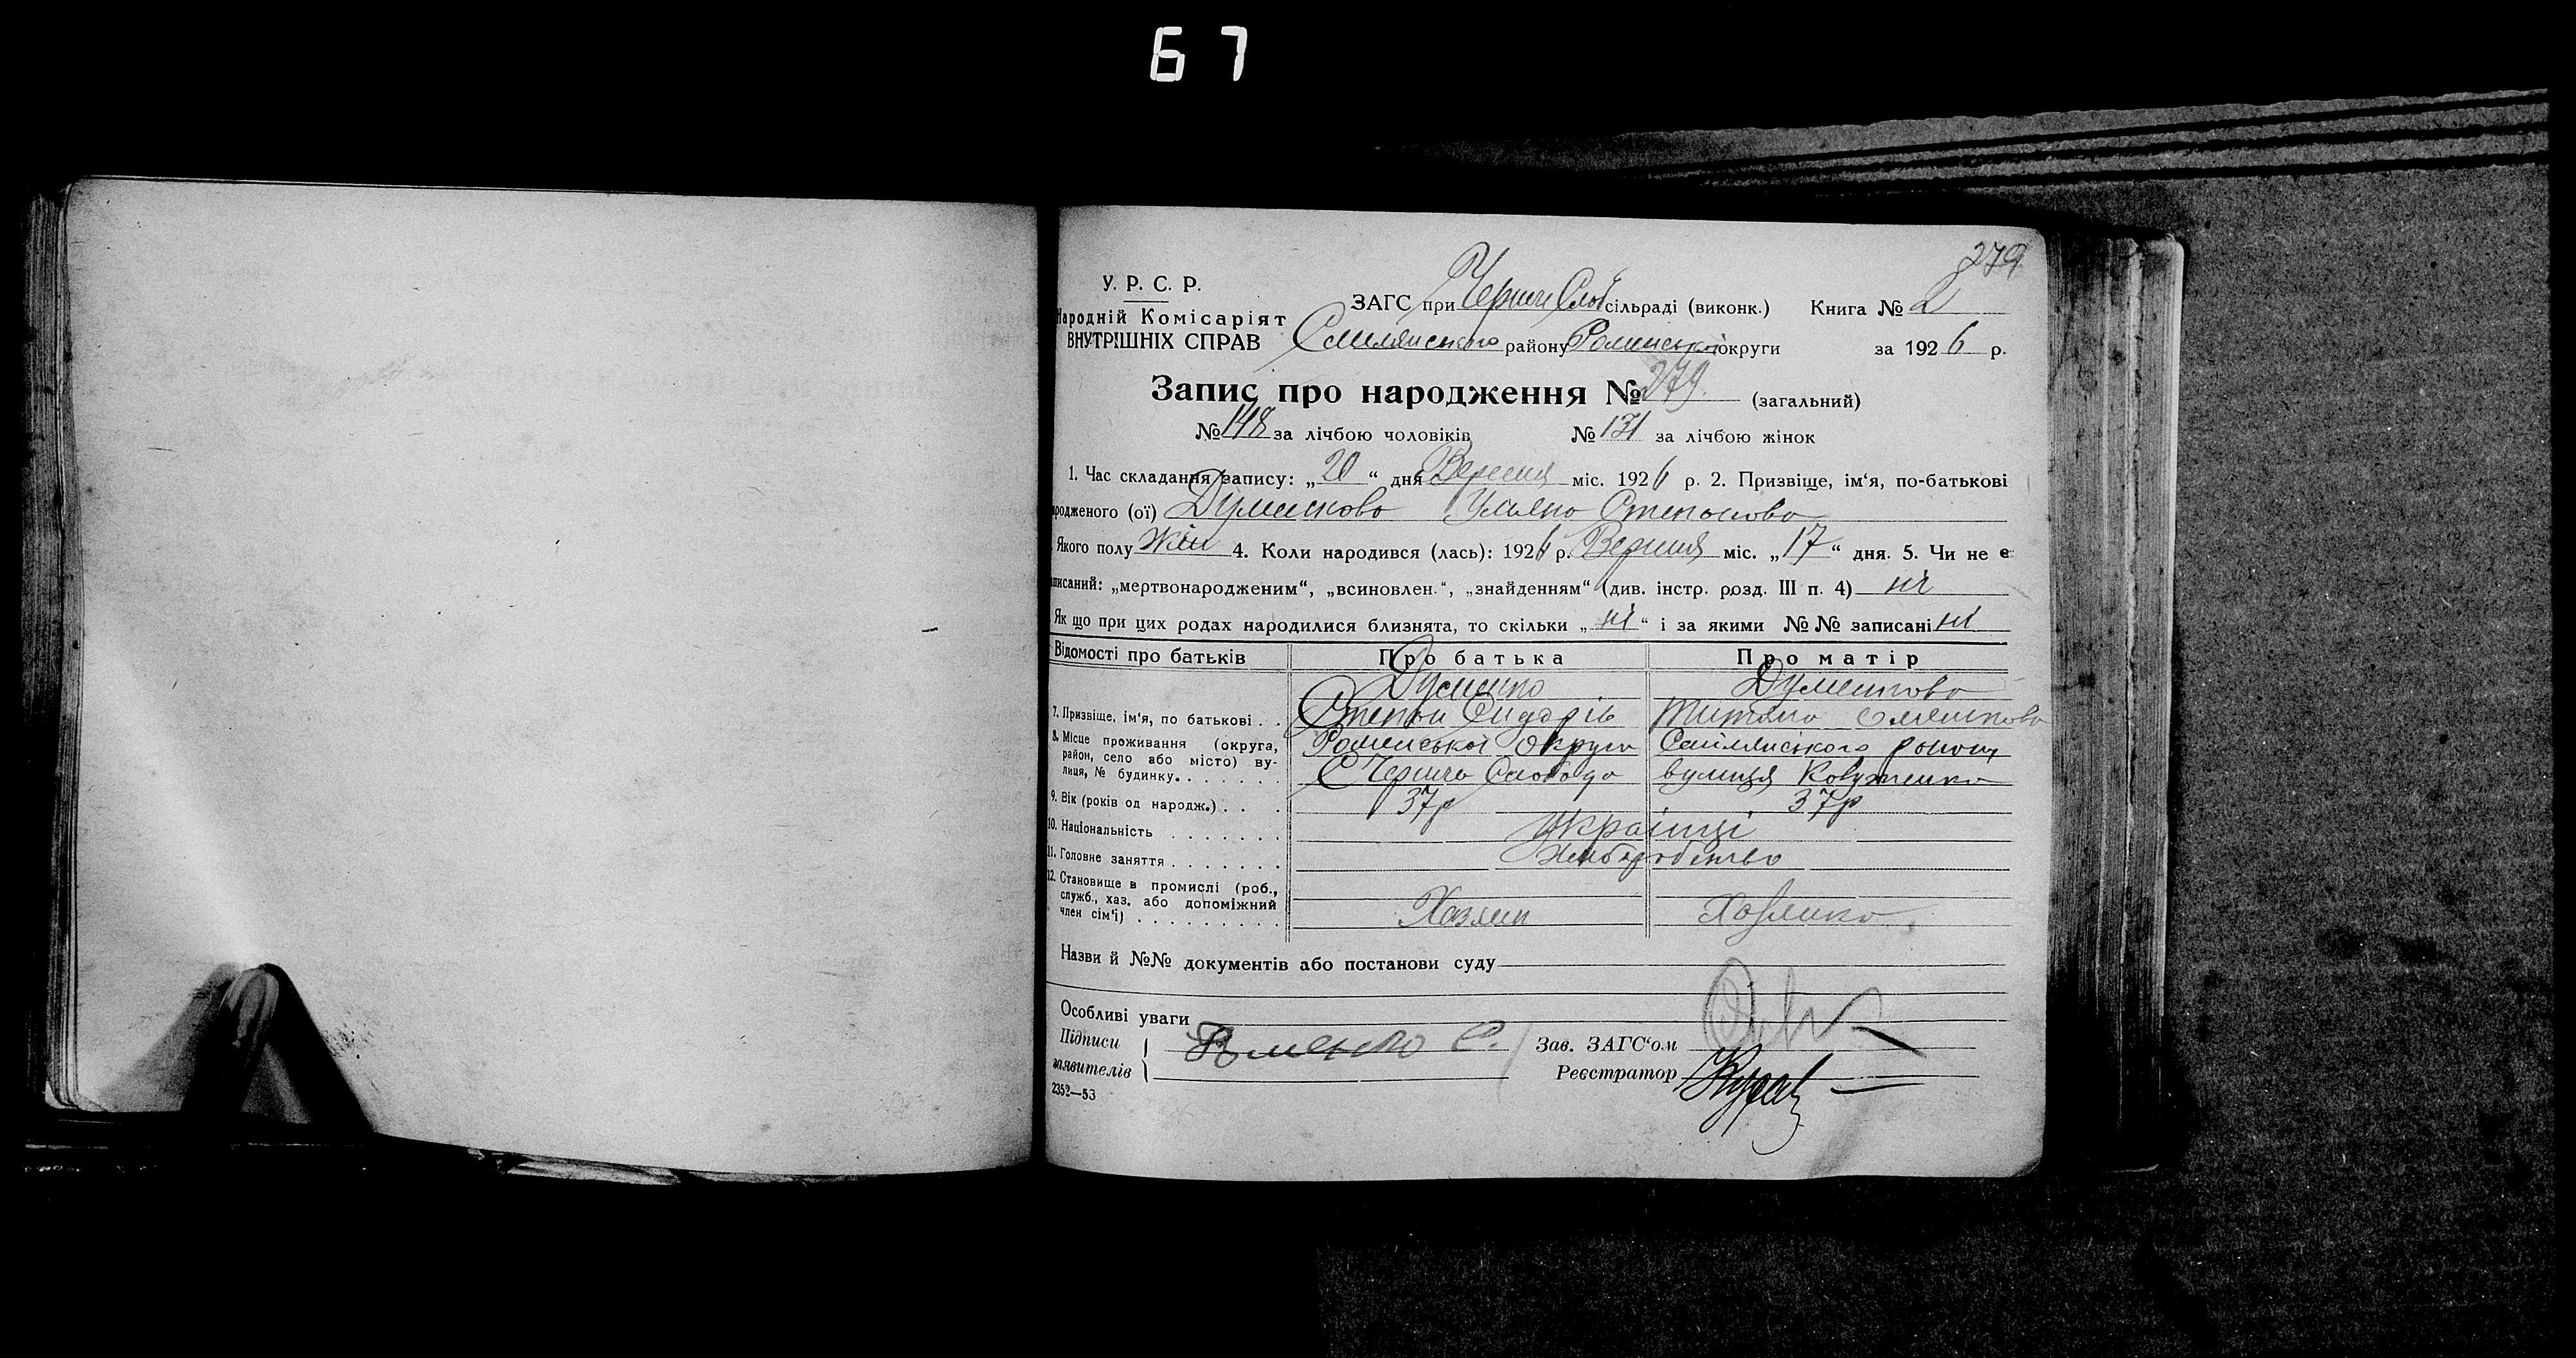 67
279
У. Р. С. Р.
Народній Комісаріят
ВНУТРІШНІХ СПРАВ
ЗАГС при Чернеч Слоб сільраді (виконк.) Книга № 2
Смілянського району Роменської округи за 1926 р.
Запис про народження № 279. (загальний)
№ 148 за лічбою чоловіків № 131 за лічбою жінок
1. Час складання запису: „20“ дня Вересня міс. 1926 р. 2. Призвіще, ім‘я, по-батькові
родженого (ої) Думенкова Уляна Степанова
Якого полу Жін 4. Коли народився (лась): 1926 р. Версня міс. „17“ дня. 5. Чи не є
писаний: „мертвонародженим“, „всиновлен.“, „знайденням“ (див. інстр. розд. III п. 4) ні
Як що при цих родах народилися близнята, то скільки „ні“ і за якими №№ записані ні
Відомості про батьків Про батька Про матір
Думенко Думенкова
7. Призвіще, ім‘я, по батькові . . Степан Сидорів
8. Місце проживання (округа, район, село або місто) вулиця, № будинку. Роменської округи Смілянського району
С Чернеча Слобода вулиця
9. Вік (років од народж.) . . . 37р 37р
10. Національність . . . . . . . Українці
11. Головне заняття . . . . . . . Хліборобство
12. Становище в промислі (роб.,
служб., хаз. або допоміжний
член сім‘ї) . . . . . . . . . Хазяин Хазяйка
Назви й №№ документів або постанови суду
Особливі уваги
Підписи
заявителів
Думенко С.
Зав. ЗАГС‘ом
Реєстратор
2352—53